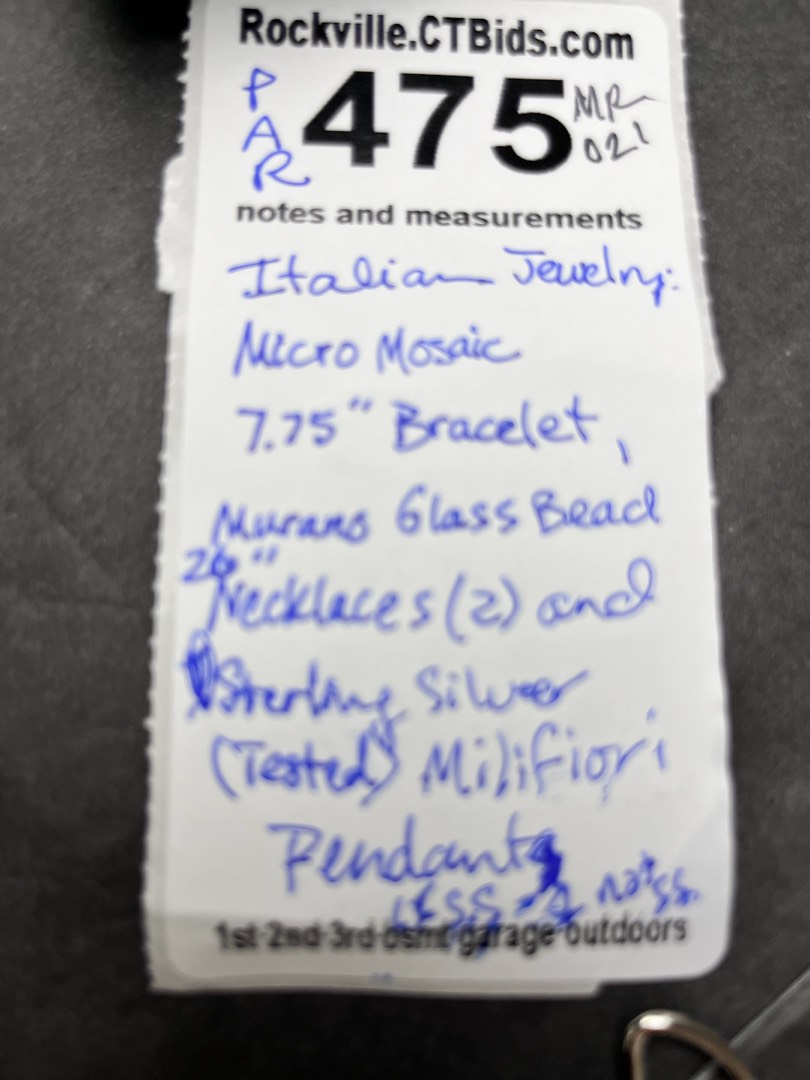 Rockville.CTBids.com
PAR
475
MR
021
notes and measurements
Italian Jewelry:
Micro Mosaic
7.75" Bracelet,
Murano Glass Bead
26"
Necklaces (2) and
Sterling Silver
(Tested) Milifiori
Pendants
not SS.
1st 2nd 3rd bsmt garage outdoors